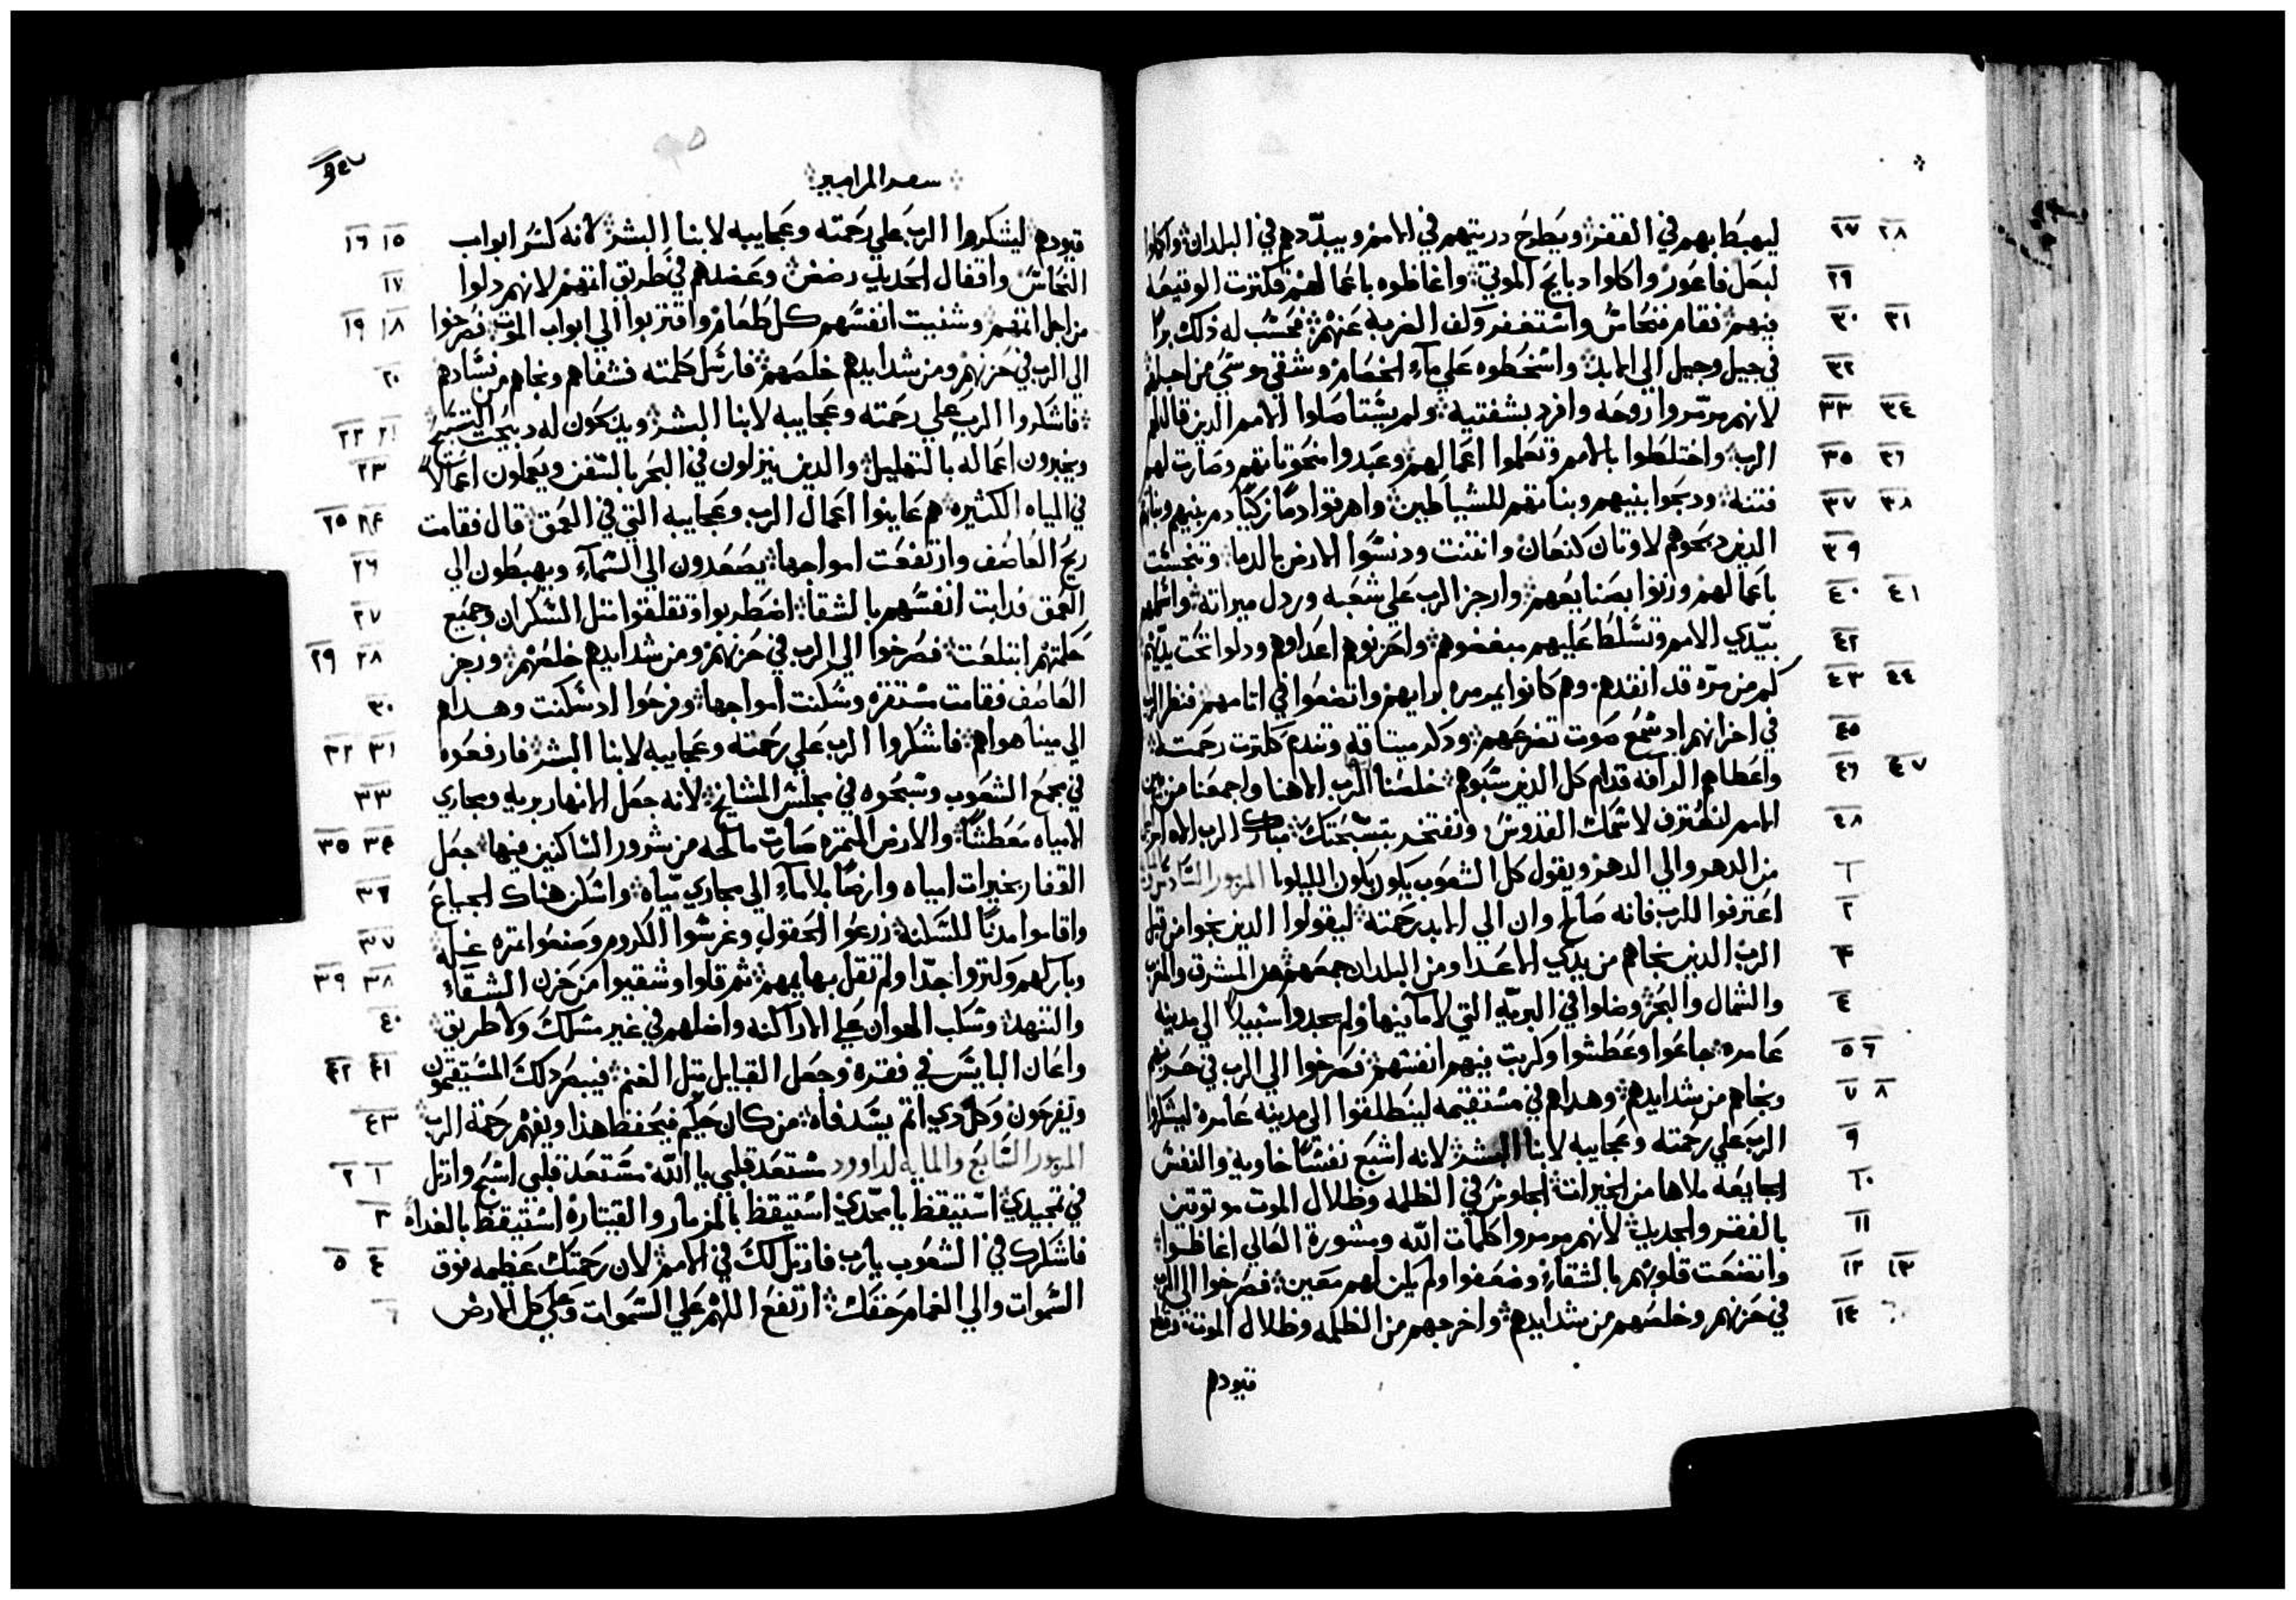 ليهبط بهم في القفر ويطرح دريتهم في الامم ويبدّدهم في البلدان واكلوا
٢٧ ٢٨
لبعل فاغور واكلوا دبايح الموتي واغاظوه باعمالهم فكترت الوقيعه
٢٩
فيهم فقام فنحاس واستغفر وكف الضربة عنهم فحسب له ذلك برًا
٣٠ ٣١
في جيل وجيل الي الابد واسخطوه علي ماء الخصام وشقي موسي من اجلهم
٣٢
لانهم مرّمروا روحه وافرد بشفتيه ولم يستاصلوا الامم الدين قال لهم
٣٣ ٣٤
الرب واختلطوا بالامم وتعلموا اعمالهم وعبدوا منحوتاتهم وصارت لهم
٣٥ ٣٦
فتنه ودبحوا بنيهم وبناتهم للشياطين واهرقوا دمًا زكيًا دم بنيهم وبناتهم
٣٧ ٣٨
الدين دبحوهم لاوتان كنعان وانتنت ودنسوا الارض بالدما وتنجست
٣٩
باعمالهم وزنوا بصنايعهم وارجز الرب علي شعبه وردل ميراته واسلمهم
٤٠ ٤١
بيدي الامم وتسلط عليهم مبغضوهم واحزنوهم اعداوهم ودلوا تحت يديهم
٤٢
كم من مرّه قد انقدهم وهم كانوا يمرمره برايهم واتضعوا في اتامهم فنظر الرب
٤٣ ٤٤
في احزانهم اد سمع صوت تضرعهم ودكر ميتاقه وتندم ككترت رحمته
٤٥
واعطاهم الرافه قدام كل الدين سبوهم خلصنا ايها الرب الاهنا واجمعنا من بين
٤٦ ٤٧
الامم لنعترف لاسمك القدوس ونفتخر بتسبحتك مبارك الرب الاه اسراييل
٤٨
من الدهر والي الدهر ويقول كل الشعوب يكون يكون الليلويا المزمور السادس
١
اعترفوا للرب فانه صالح وان الي الابد رحمته ليقولوا الدين نجوا من قبل
٢
الرب الدين نجاهم من يدي الاعدا ومن البلدان جمعهم من المشرق والمغرب
٣
والشمال والبحر وضلوا في البريّه التي لا ما فيها ولم يجدوا سبيلاً الي مدينه
٤
عامره جاعوا وعطشوا وكربت فيهم انفسهم فصرخوا الي الرب في حزنهم
٥ ٦
ونجاهم من شدايدهم وهداهم في مستقيمه لينطلقوا الي مدينه عامره ليشكروا
٧ ٨
الرب علي رحمته وعجايبه لابنا البشر لانه اشبع نفسًا خاويه والنفس
٩
الجايعه ملاها من الخيرات الجلوس في الظلمه وظلال الموت موتوقين
١٠
بالفقر والحديد لانهم مرمروا كلمات الله ومشورة العالي اغاظوا
١١
واتضعت قلوبهم بالشقاء وضعفوا ولم يكن لهم معين فصرخوا الي الرب
١٢ ١٣
في حزنهم وخلصهم من شدايدهم واخرجهم من الظلمه وظلال الموت وقطع
١٤
قيودهم
سفر المزامير
قيودهم ليشكروا الرب علي رحمته وعجايبه لابنا البشر لانه كسر ابواب
١٥ ١٦
النحاس واقفال الحديد رضض وعضدهم في طريق اتمهم لانهم دلوا
١٧
من اجل اتمهم وشنيت انفسهم كل طعام واقتربوا الي ابواب الموت فصرخوا
١٨ ١٩
الي الرب في حزنهم ومن شدايدهم خلصهم فارسل كلمته فشفاهم ونجاهم من فسادهم
٢٠
فاشكروا الرب علي رحمته وعجايبه لابنا البشر ويدبحون له دبيحت التسبيح
٢١ ٢٢
ويخبرون اعماله بالتهليل والدين ينزلون في البحر بالسفن ويعملون اعمالاً
٢٣
في المياه الكثيره هم عاينوا اعمال الرب وعجايبه التي في العمق قال فقامت
٢٤ ٢٥
ريح العاصف وارتفعت امواجها يصعدون الي السماء ويهبطون الي
٢٦
العمق فدابت انفسهم بالشقا اضطربوا وتقلقوا متل السكران وجميع
٢٧
حكمتهم ابتلعت فصرخوا الي الرب في حزنهم ومن شدايدهم خلصهم ورجز
٢٨ ٢٩
العاصف فقامت مستقره وسكنت امواجها وفرحوا اد سكنت وهداهم
٣٠
الي مينا هواهم فاشكروا الرب علي رحمته وعجايبه لابنا البشر فارفعوه
٣١ ٣٢
في مجمع الشعوب وسبحوه في مجلس المشايخ لانه جعل الانهار بريه ومجاري
٣٣
الامياه معطشًا والارض المتمره صارت مالحه من شرور الساكنين فيها جعل
٣٤ ٣٥
القفار بخيرات امياه وارضًا بلا ماء الي مجاري مياه واسكن هناك الجياع
٣٦
واقاموا مدنًا للسكنه زرعوا الحقول وغرسوا الكروم وصنعوا تمره غله
٣٧
وباركهم وكتروا جدّا ولم تقل بهايمهم تم قلوا وشقيوا من حزن الشقاء
٣٨ ٣٩
والتنهد وسكب الهوان علي الاراكنه واضلهم في غير مسلك ولا طريق
٤٠
واعان البايس في فقره وجعل القبايل متل الغنم فيبصر دلك المستقيمون
٤١ ٤٢
ويفرحون وكل دي اتم يسد فاه من كان حكيم فيحفظ هذا ويفهم رحمة الرب
٤٣
المزمور السابع والمايه لداوود مستعد قلبي يا الله مستعد قلبي اسبح وارتل
١ ٢
في تمجيدي استيقظ يا مجدي استيقظ بالمزمار والقيتاره استيقظ بالغداه
٣
فاشكرك في الشعوب يا رب فارتل لك في الامم لان رحمتك عظيمه فوق
٤ ٥
السموات والي الغمام حقك ارتفع اللهم علي السموات وعلي كل الارض
٦